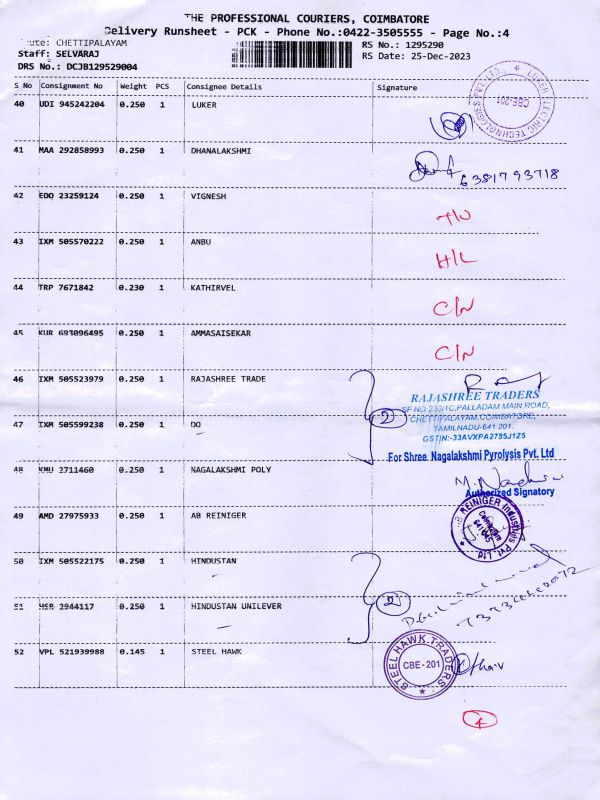 THE PROFESSIONAL COURIERS, COIMBATORE
Delivery Runsheet - PCK - Phone No.:0422-3505555 - Page No.:4
Route: CHETTIPALAYAM
RS No.: 1295290
Staff: SELVARAJ
RS Date: 25-Dec-2023
DRS No.: DCJB129529004
S No Consignment No Weight PCS Consignee Details Signature
40 UDI 945242204 0.250 1 LUKER
LUKER ELECTRIC TECHNOLOGIES PVT. LTD. * CBE-201
41 MAA 292858993 0.250 1 DHANALAKSHMI
6381793718
42 EDO 23259124 0.250 1 VIGNESH
43 IXM 505570222 0.250 1 ANBU
H/L
44 TRP 7671842 0.230 1 KATHIRVEL
C/N
45 KUR 693096495 0.250 1 AMMASAISEKAR
C/N
46 IXM 505523979 0.250 1 RAJASHREE TRADE
RAJASHREE TRADERS
PALLADAM MAIN ROAD,
CHETTIPALAYAM, COIMBATORE,
TAMILNADU-641 201.
GSTIN:-33AVXPA2785J1Z5
47 IXM 505599238 0.250 1 DO
2
For Shree. Nagalakshmi Pyrolysis Pvt. Ltd
48 KMU 2711460 0.250 1 NAGALAKSHMI POLY
Authorized Signatory
49 AMD 27975933 0.250 1 AB REINIGER
REINIGER Industries Pvt. Ltd * Coimbatore
50 IXM 505522175 0.250 1 HINDUSTAN
51 HSR 2944117 0.250 1 HINDUSTAN UNILEVER
2
52 VPL 521939988 0.145 1 STEEL HAWK
STEEL HAWK TRADERS * CBE-201
4